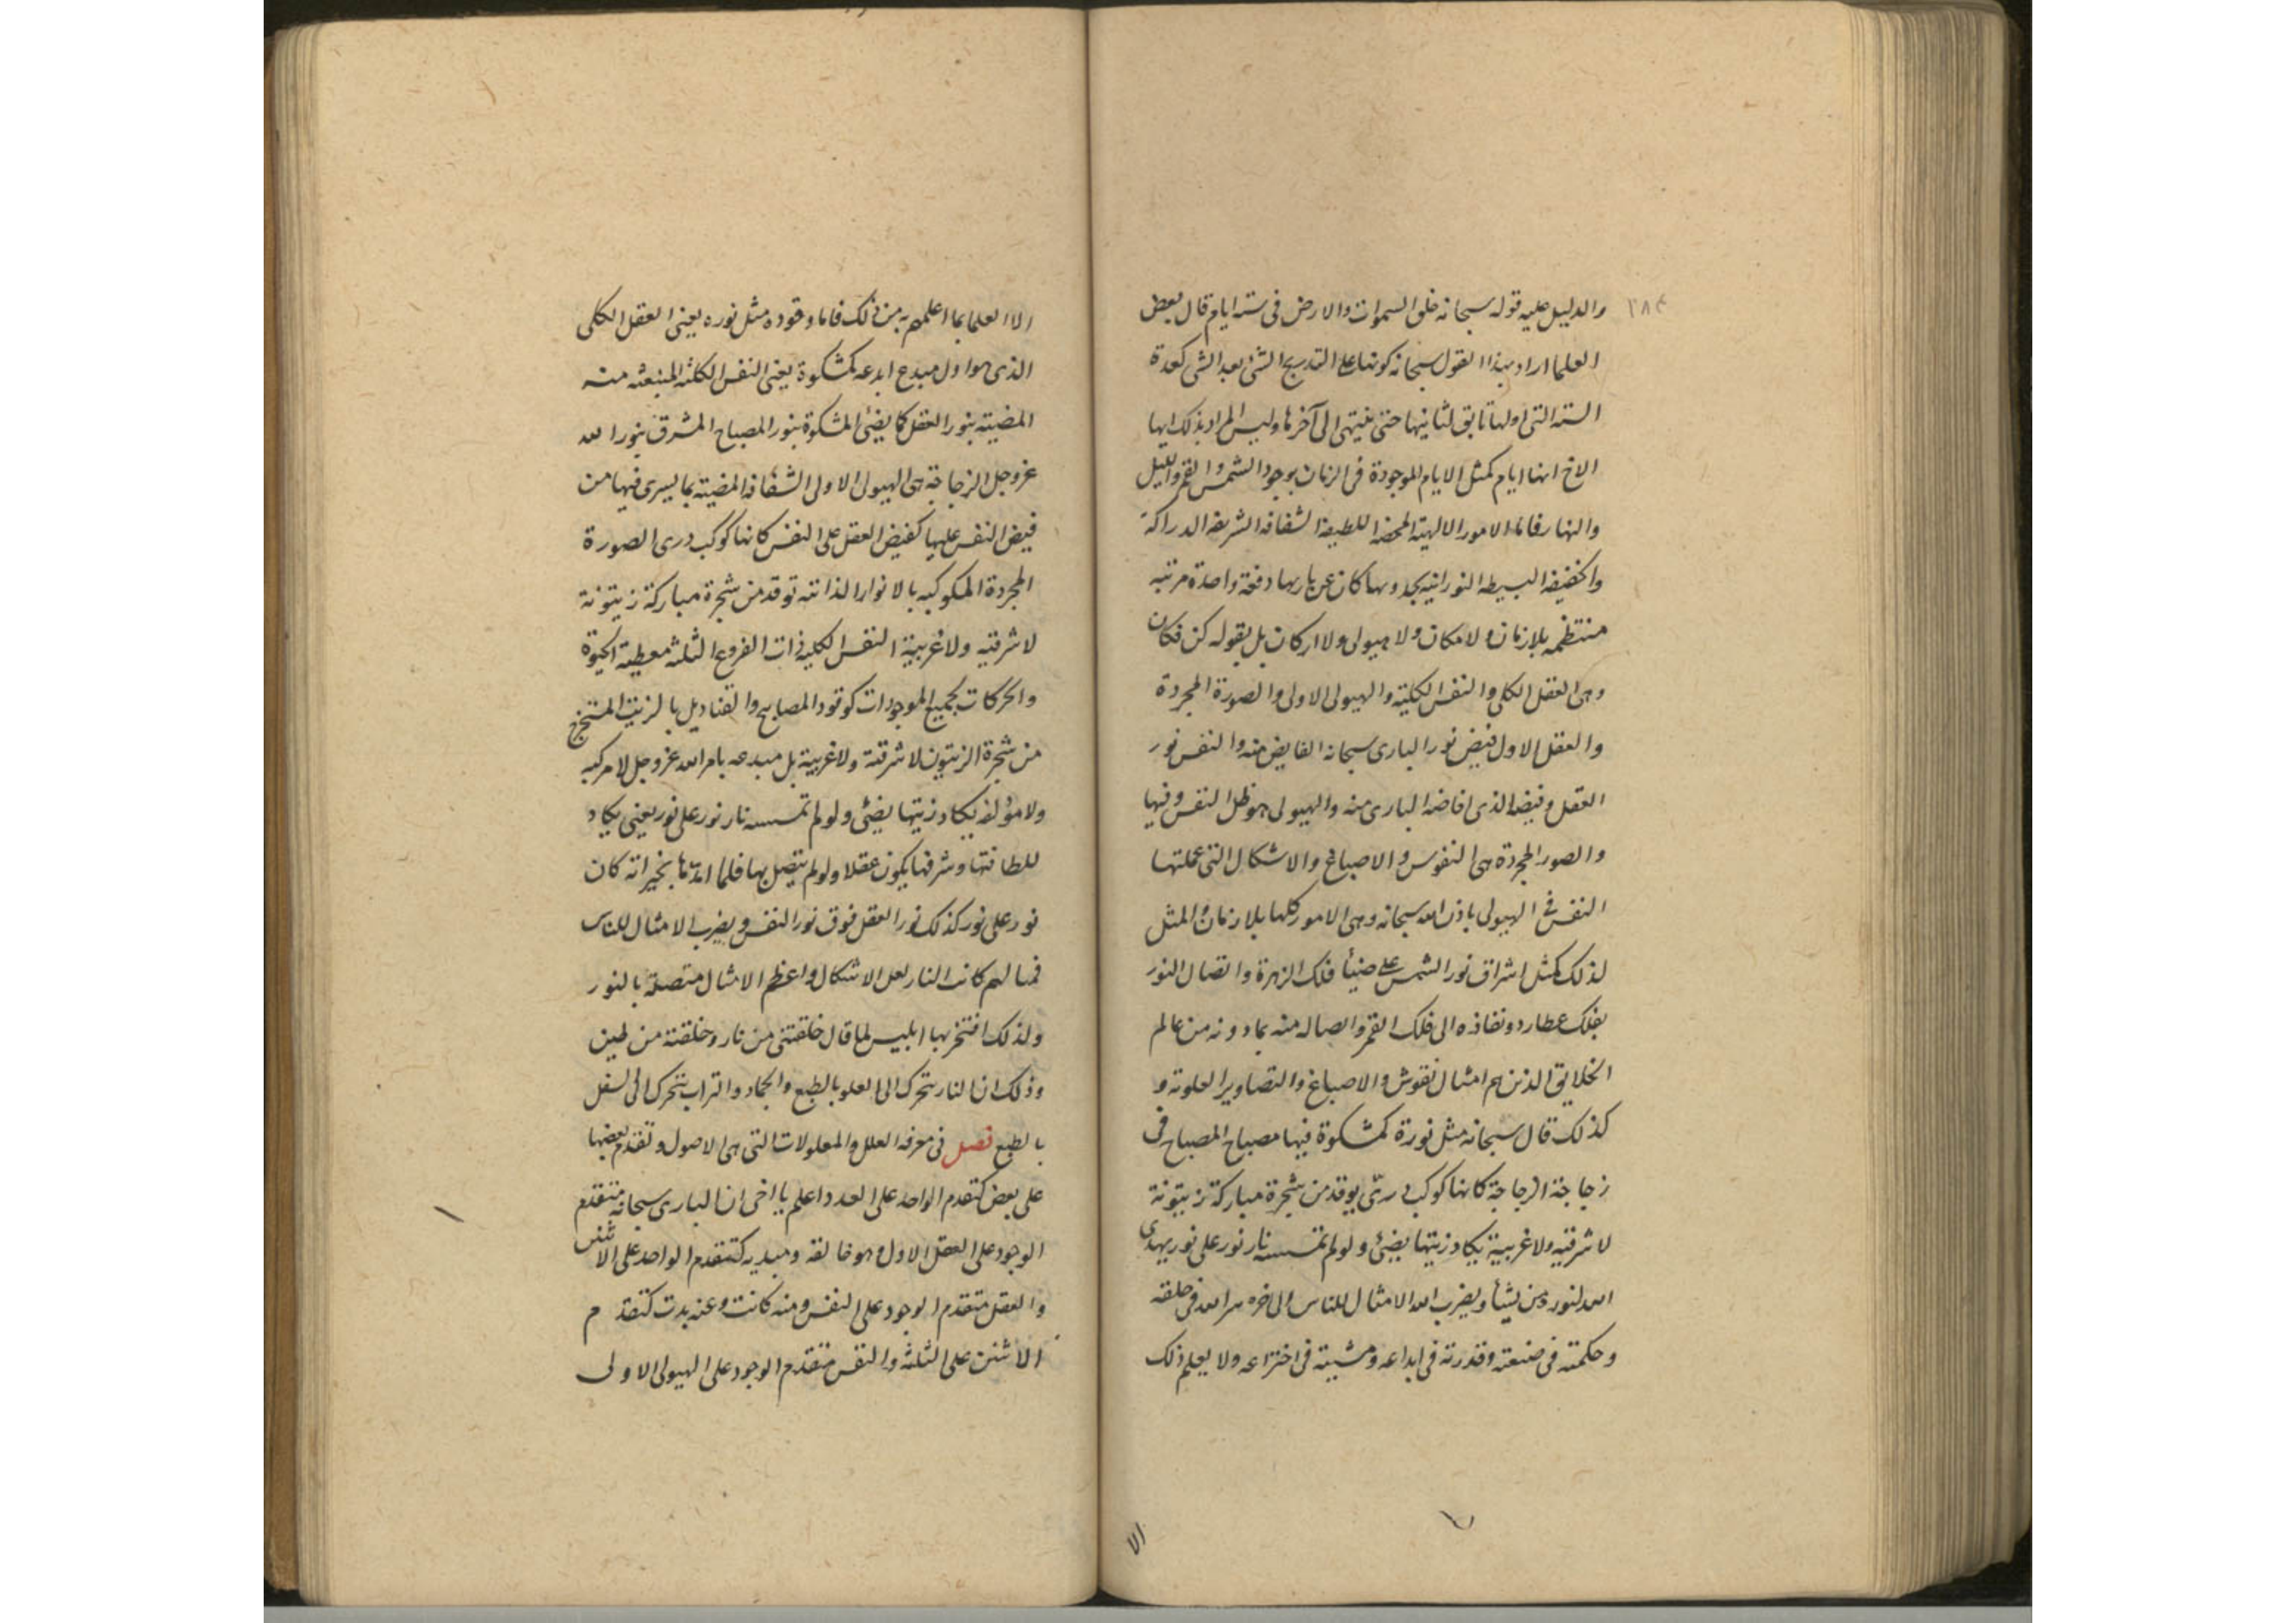 ٢٨٤
والدليل عليه قوله سبحانه خلق السموات والارض فى ستة ايام قال بعض
العلما اراد بهذا القول سبحانه كونها على التدريج الشئ بعد الشى كعدة
الستة التى اولها سابق لثانيها حتى ينتهى الى آخرها وليس المراد بذلك ايها
الاخ انها ايام كمثل الايام الموجودة فى الزمان بوجود الشمس والقمر والليل
والنهار فاما الامور الالهية المحضة اللطيفة الشفافة الشريفة الدراكة
والخفيفة البسيطة النورانية حدوثها كان عن باريها دفعة واحدة مرتبة
منتظمة بلا زمان ولا مكان ولا هيولى ولا اركان بل بقوله كن فكان
وهى العقل الكلى والنفس الكلية والهيولى الاولى والصورة المجردة
والعقل الاول فيض نور البارى سبحانه الفايض منه والنفس نور
العقل وفيضه الذى افاضه البارى منه والهيولى هو ظل النفس وفيها
والصور المجردة هى النقوس والاصباغ والاشكال التى عملتها
النفس فى الهيولى باذن الله سبحانه وهى الامور كلها بلا زمان والمثل
لذلك كمثل اشراق نور الشمس على ضيئا فلك الزهرة واتصال النور
بفلك عطارد ونفاذه الى فلك القمر واتصاله منه بما دونه من عالم
الخلايق الذين هم امثال نقوش والاصباغ والتصاوير العلوية و
كذلك قال سبحانه مثل نورة كمشكوة فيها مصباح المصباح فى
زجاجة الزجاجة كانها كوكب درىّ يوقد من شجرة مباركة زيتونة
لا شرقيه ولا غربية يكاد زيتها يضئ ولو لم تمسسه نار نور على نور يهدى
الله لنوره من يشأ ويضرب الله الامثال للناس والى اخره سر الله فى خلقه
وحكمته فى صنعته وقدرته فى ابداعه ومشيته فى اختراعه ولا يعلم ذلك
الا
الا العلما بما اعلمهم به من ذلك فاما وقوده مثل نوره يعنى العقل الكلى
الذى هو اول مبدع ابدعه كمشكوة يعنى النفس الكلية المنبعثه منه
المضيئه بنور العقل كما يضئ المشكوة بنور المصباح المشرق بنور الله
عز وجل الزجاجة هى الهيولى الاولى الشفافة المضيئه بما يسرى فيها من
فيض النفس عليها كفيض العقل على النفس كانها كوكب درى الصورة
المجردة المكوكبه بالانوار الذاتيه توقد من شجرة مباركة زيتونة
لا شرقيه ولا غربية النفس الكلية ذات الفروع الثلثة معطية الحيوة
والحركات لجميع الموجودات كوقود المصابيح والقناديل بالزيت المستخرج
من شجرة الزيتون لا شرقية ولا غربية بل مبدعه بامر الله عز وجل لا مركبه
ولا مؤلفه يكاد زيتها يضئى ولو لم تمسسه نار نور على نور يعنى يكاد
للطافتها وشرفها يكون عقلا ولو لم يتصل بها فلما امدّها بخيراته كان
نور على نور كذلك نور العقل فوق نور النفس ويضرب الامثال للناس
فمالهم كانت النار لعل الاشكال واعظم الامثال متصلة بالنور
ولذلك افتخر بها ابليس لما قال خلقتنى من نار وخلقته من طين
وذلك ان النار تتحرك الى العلو بالطبع والجماد والتراب يتحرك الى السفل
بالطبع فصل فى معرفة العلل والمعلولات التى هى الاصول وتقدم بعضها
على بعض كتقدم الواحد على العدد اعلم يا اخى ان البارى سبحانه متقدم
الوجود على العقل الاول وهو خالقه ومبديه كتقدم الواحد على الاثنين
والعقل متقدم الوجود على النفس ومنه كانت وعنه بدت كتقدم
الاثنين على الثلثه والنفس متقدم الوجود على الهيولى الاولى